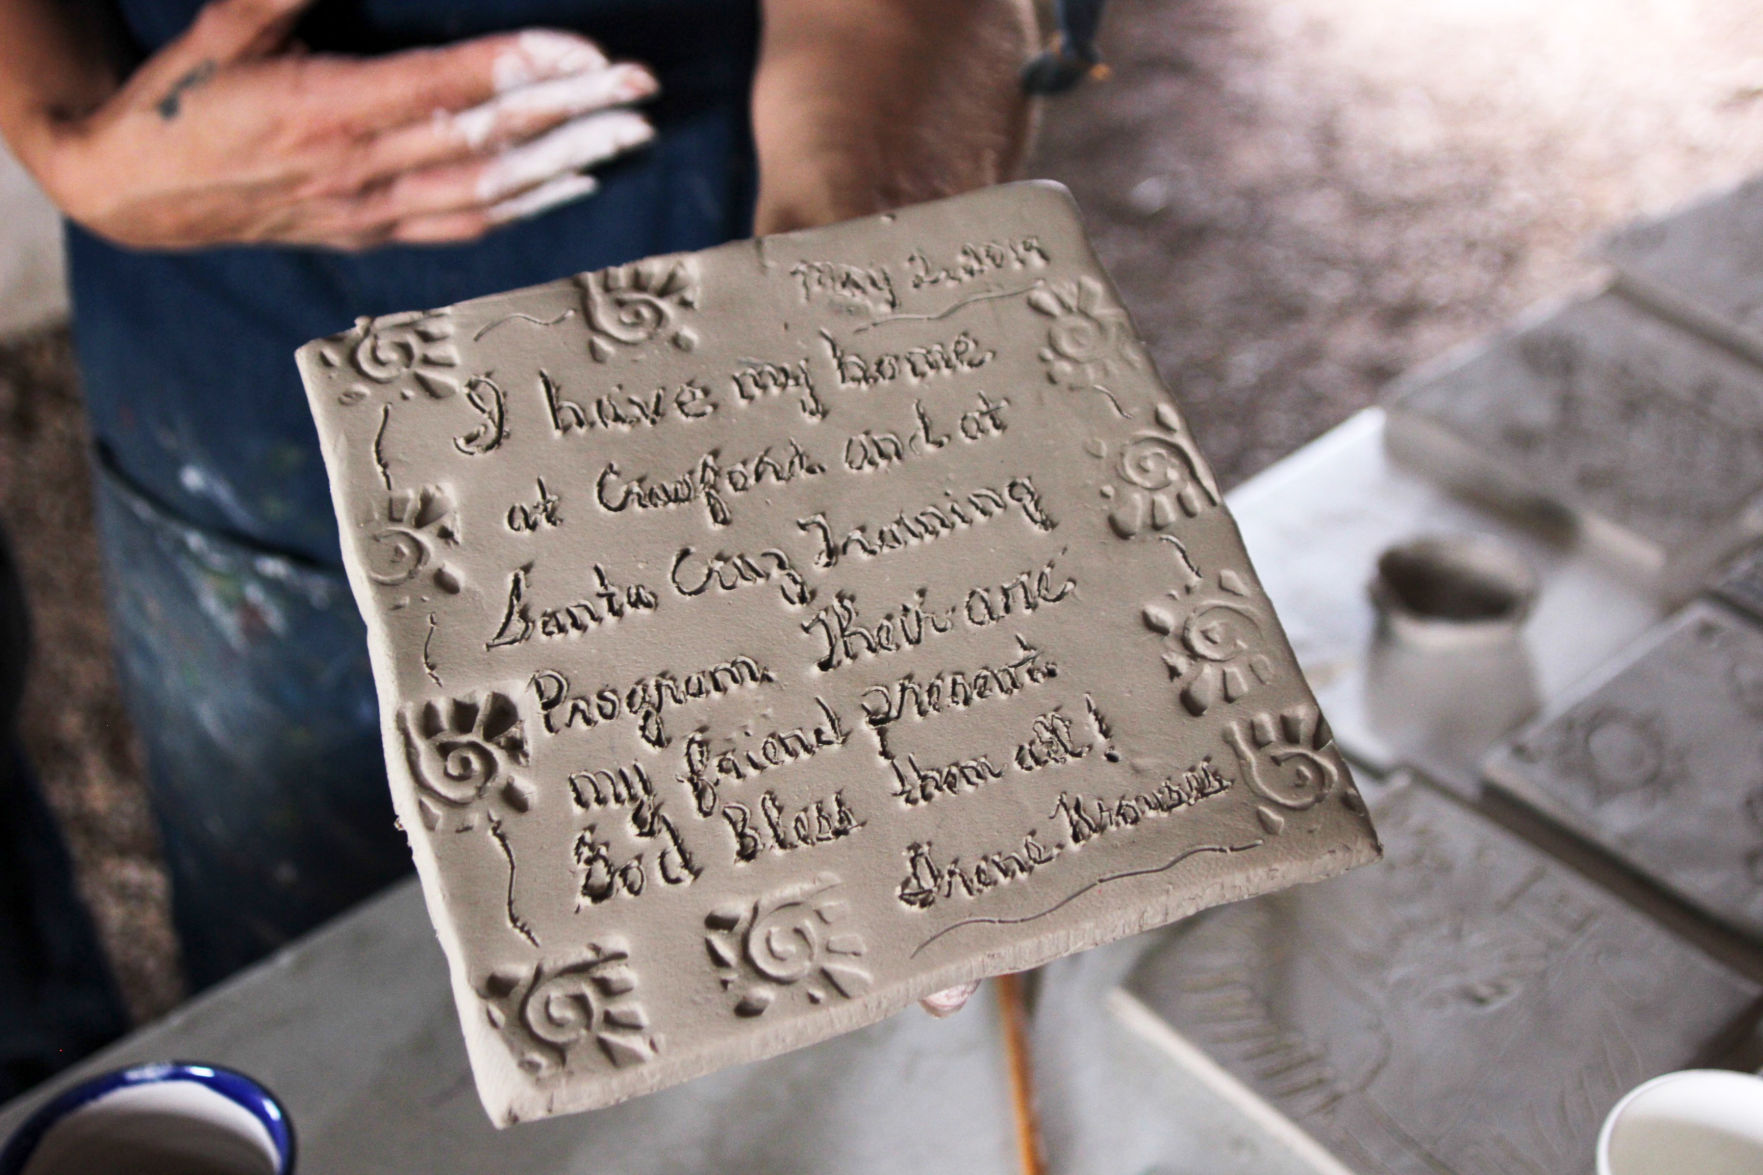 May 2, 2019
I have my home
at Crawford and at
Santa Cruz Training
Program. Their are
my friend present.
God Bless them all!
Irene